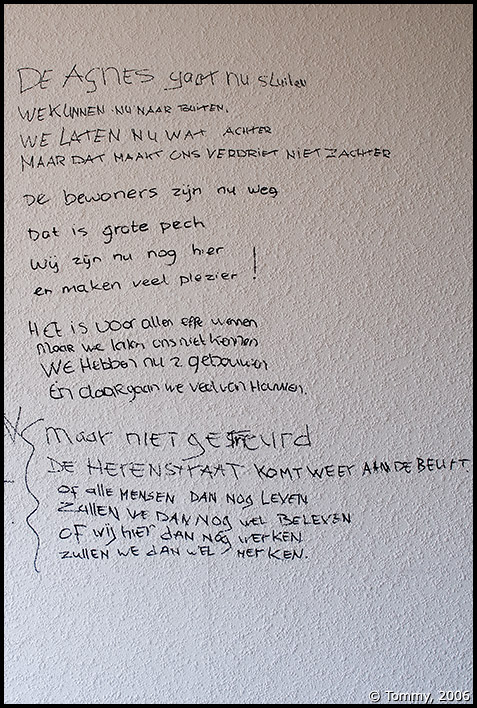 DE AGNES gaat nu sluiten
WE KUNNEN NU NAAR BUITEN.
WE LATEN NU WAT ACHTER
MAAR DAT MAAKT ONS VERDRIET NIET ZACHTER
De bewoners zijn nu weg
Dat is grote pech
Wij zijn nu nog hier
en maken veel plezier !
HET is voor allen effe wennen
Maar we laten ons niet kennen
WE HEBBEN nu 2 gebouwen
En daar gaan we veel van Houwen.
Maar NIET getreurd
DE HERENSTRAAT KOMT WEER AAN DE BEURT.
Of alle MENSEN DAN NOG LEVEN
ZULLEN WE DAN NOG WEL BELEVEN
OF WIJ HIER DAN NOG WERKEN
ZULLEN WE DAN WEL MERKEN.
© Tommy, 2006